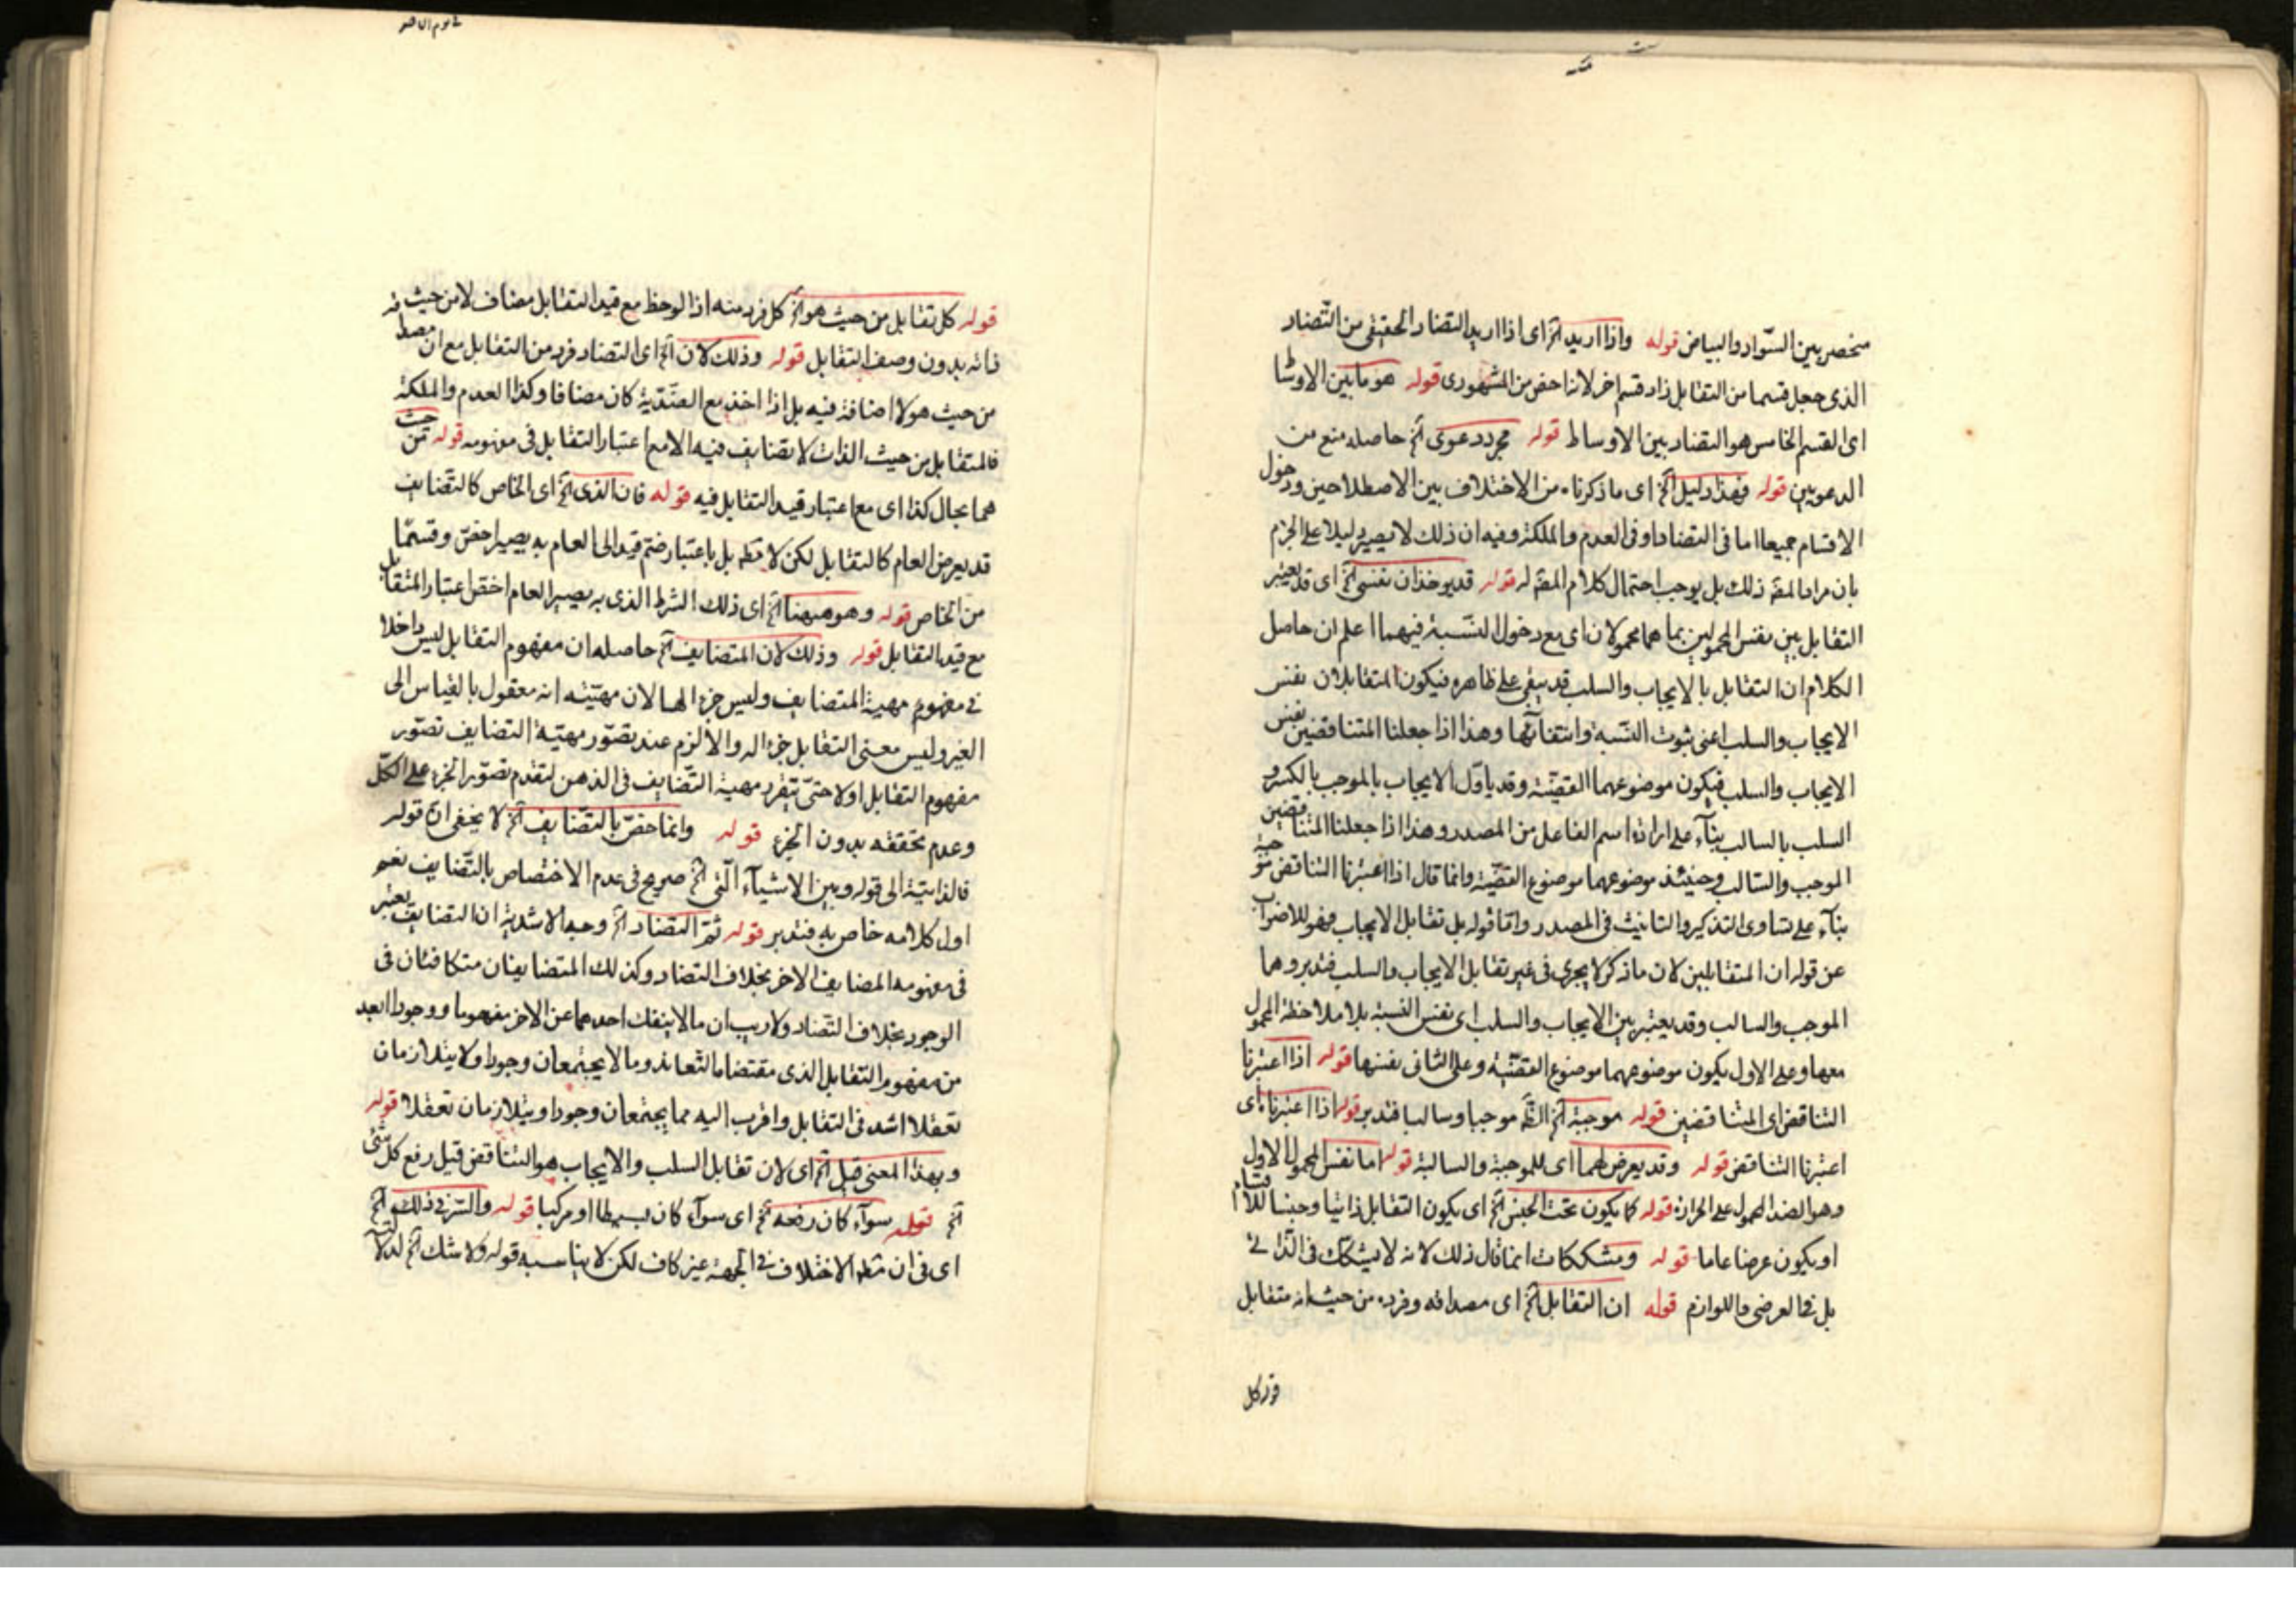 منحصر بين السّواد والبياض قوله واذا اريد آلخ اى اذا اريد التضاد الحقيقى من التّضاد
الذى جعل قسما من التقابل زاد قسم اخر لانه اخص من المشهورى قوله هو ما بين الاوساط
اى القسم الخامس هو التضاد بين الاوساط قوله مجرد دعوى آلخ حاصله منع من
الدعويين قوله فهذا دليل آلخ اى ما ذكرناه من الاختلاف بين الاصطلاحين ودخول
الاقسام جميعا اما فى التضاد او فى العدم والملكة وفيه ان ذلك لا يصير دليلا على الجزم
بان مراد المصّ ذلك بل يوجب احتمال كلام المصّ له قوله قد يوخذان نفسى آلخ اى قد يعتبر
التقابل بين نفس المحمولين بما هما محمولان اى مع دخول النّسبة فيهما اعلم ان حاصل
الكلام ان التقابل بالايجاب والسلب قد يبقى على ظاهره فيكون المتقابلان نفس
الايجاب والسلب اعنى ثبوت النّسبة وانتفائها وهذا اذا جعلنا المتناقضين نفس
الايجاب والسلب فيكون موضوعهما القضيّة وقد ياوّل الايجاب بالموجب بالكسر و
السلب بالسالب بنآء على ارادة اسم الفاعل من المصدر وهذا اذا جعلنا المتناقضين
الموجب والسّالب وحينئذ موضوعهما موضوع القضيّة وانما قال اذا اعتبرنا التناقض موجبة
بنآء على تساوى التذكير والتانيث فى المصدر وامّا قوله بل تقابل الايجاب فهو للاضراب
عن قوله ان المتقابلين لان ما ذكر لا يجرى فى غير تقابل الايجاب والسلب فتدبر وهما
الموجب والسالب وقد يعتبر بين الايجاب والسلب اى نفس النسبة بلا ملاحظة المحمول
معها وعلى الاول يكون موضوعهما موضوع القضيّة وعلى الثانى نفسها قوله اذا اعتبرنا
التناقض اى المتناقضين قوله موجبة آلخ الظّ موجبا وسالبا فتدبر قوله اذا اعتبرناه اى
اعتبرنا التناقض قوله وقد يعرض لهما اى للموجبة والسالبة قوله اما نفس المحمول الاول
وهو الضد المحمول على الحرارة قوله كما يكون تحت الجنس آلخ اى يكون التقابل ذاتيا وجنسا للاقسام
او يكون عرضا عاما قوله ومشككات انما قال ذلك لانه لا يشكّك فى الذّاتى
بل فى العرضى واللوازم قوله ان التقابل آلخ اى مصداقه وفرده من حيث انه متقابل
قوله كل
قوله كل تقابل من حيث هو آلخ كل فرد منه اذا لوحظ مع قيد التقابل مضاف لا من حيث
ذاته بدون وصف التقابل قوله وذلك لان آلخ اى التضاد فرد من التقابل مع ان
من حيث هو لا اضافة فيه بل اذا اخذ مع الضّدّية كان مضافا وكذا العدم والملكة
فالمتقابل من حيث الذات لا تضايف فيه الا مع اعتبار التقابل فى مفهومه قوله من حيث
هما بحال كذا اى مع اعتبار قيد التقابل فيه قوله فان الذى آلخ اى الخاص كالتّضايف
قد يعرض العام كالتقابل لكن لا مطّ بل باعتبار ضمّ قيد الى العام به يصير اخصّ وقسمًا
من الخاص قوله وهو ههنا آلخ اى ذلك الشرط الذى به يصير العام اخصّ اعتبار المتقابل
مع قيد التقابل قوله وذلك لان المتضايف آلخ حاصله ان مفهوم التقابل ليس داخلا
فى مفهوم مهية المتضايف وليس جزءا لها لان مهيّته انه معقول بالقياس الى
الغير وليس معنى التقابل جزءا له والا لزم عند تصّور مهيّة التضايف تصّور
مفهوم التقابل اولا حتّى يتقرّر مهية التّضايف فى الذهن لتقدم تصوّر الجزء على الكلّ
وعدم تحققه بدون الجزء قوله وانما خصّ بالتّضايف آلخ لا يخفى انّ قوله
فالذاتية الى قوله وبين الاشيآء الّتى آلخ صريح فى عدم الاختصاص بالتّضايف نعم
اول كلامه خاص به فتدبر قوله ثمّ التضاد آلخ وجه الاشدية ان التضايف يعتبر
فى مفهومه المضايف الاخر بخلاف التضاد وكذلك المتضايفان متكافئان فى
الوجود بخلاف التّضاد ولا ريب ان ما لا ينفك احدهما عن الاخر مفهوما ووجودا ابعد
من مفهوم التقابل الذى مقتضاه التّعاند وما لا يجتمعان وجودا ولا يتلازمان
تعقلا اشد فى التقابل واقرب اليه مما يجتمعان وجودا ويتلازمان تعقلا قوله
وبهذا المعنى قيل آلخ اى لان تقابل السلب والايجاب هو التناقض قيل رفع كل شئ
آلخ قوله سوآء كان رفعه آلخ اى سوآء كان بسيطا او مركبا قوله والسّر فى ذلك آلخ
اى فى ان مطّ الاختلاف فى الجهة غير كاف لكن لا يناسبه قوله ولا شك آلخ